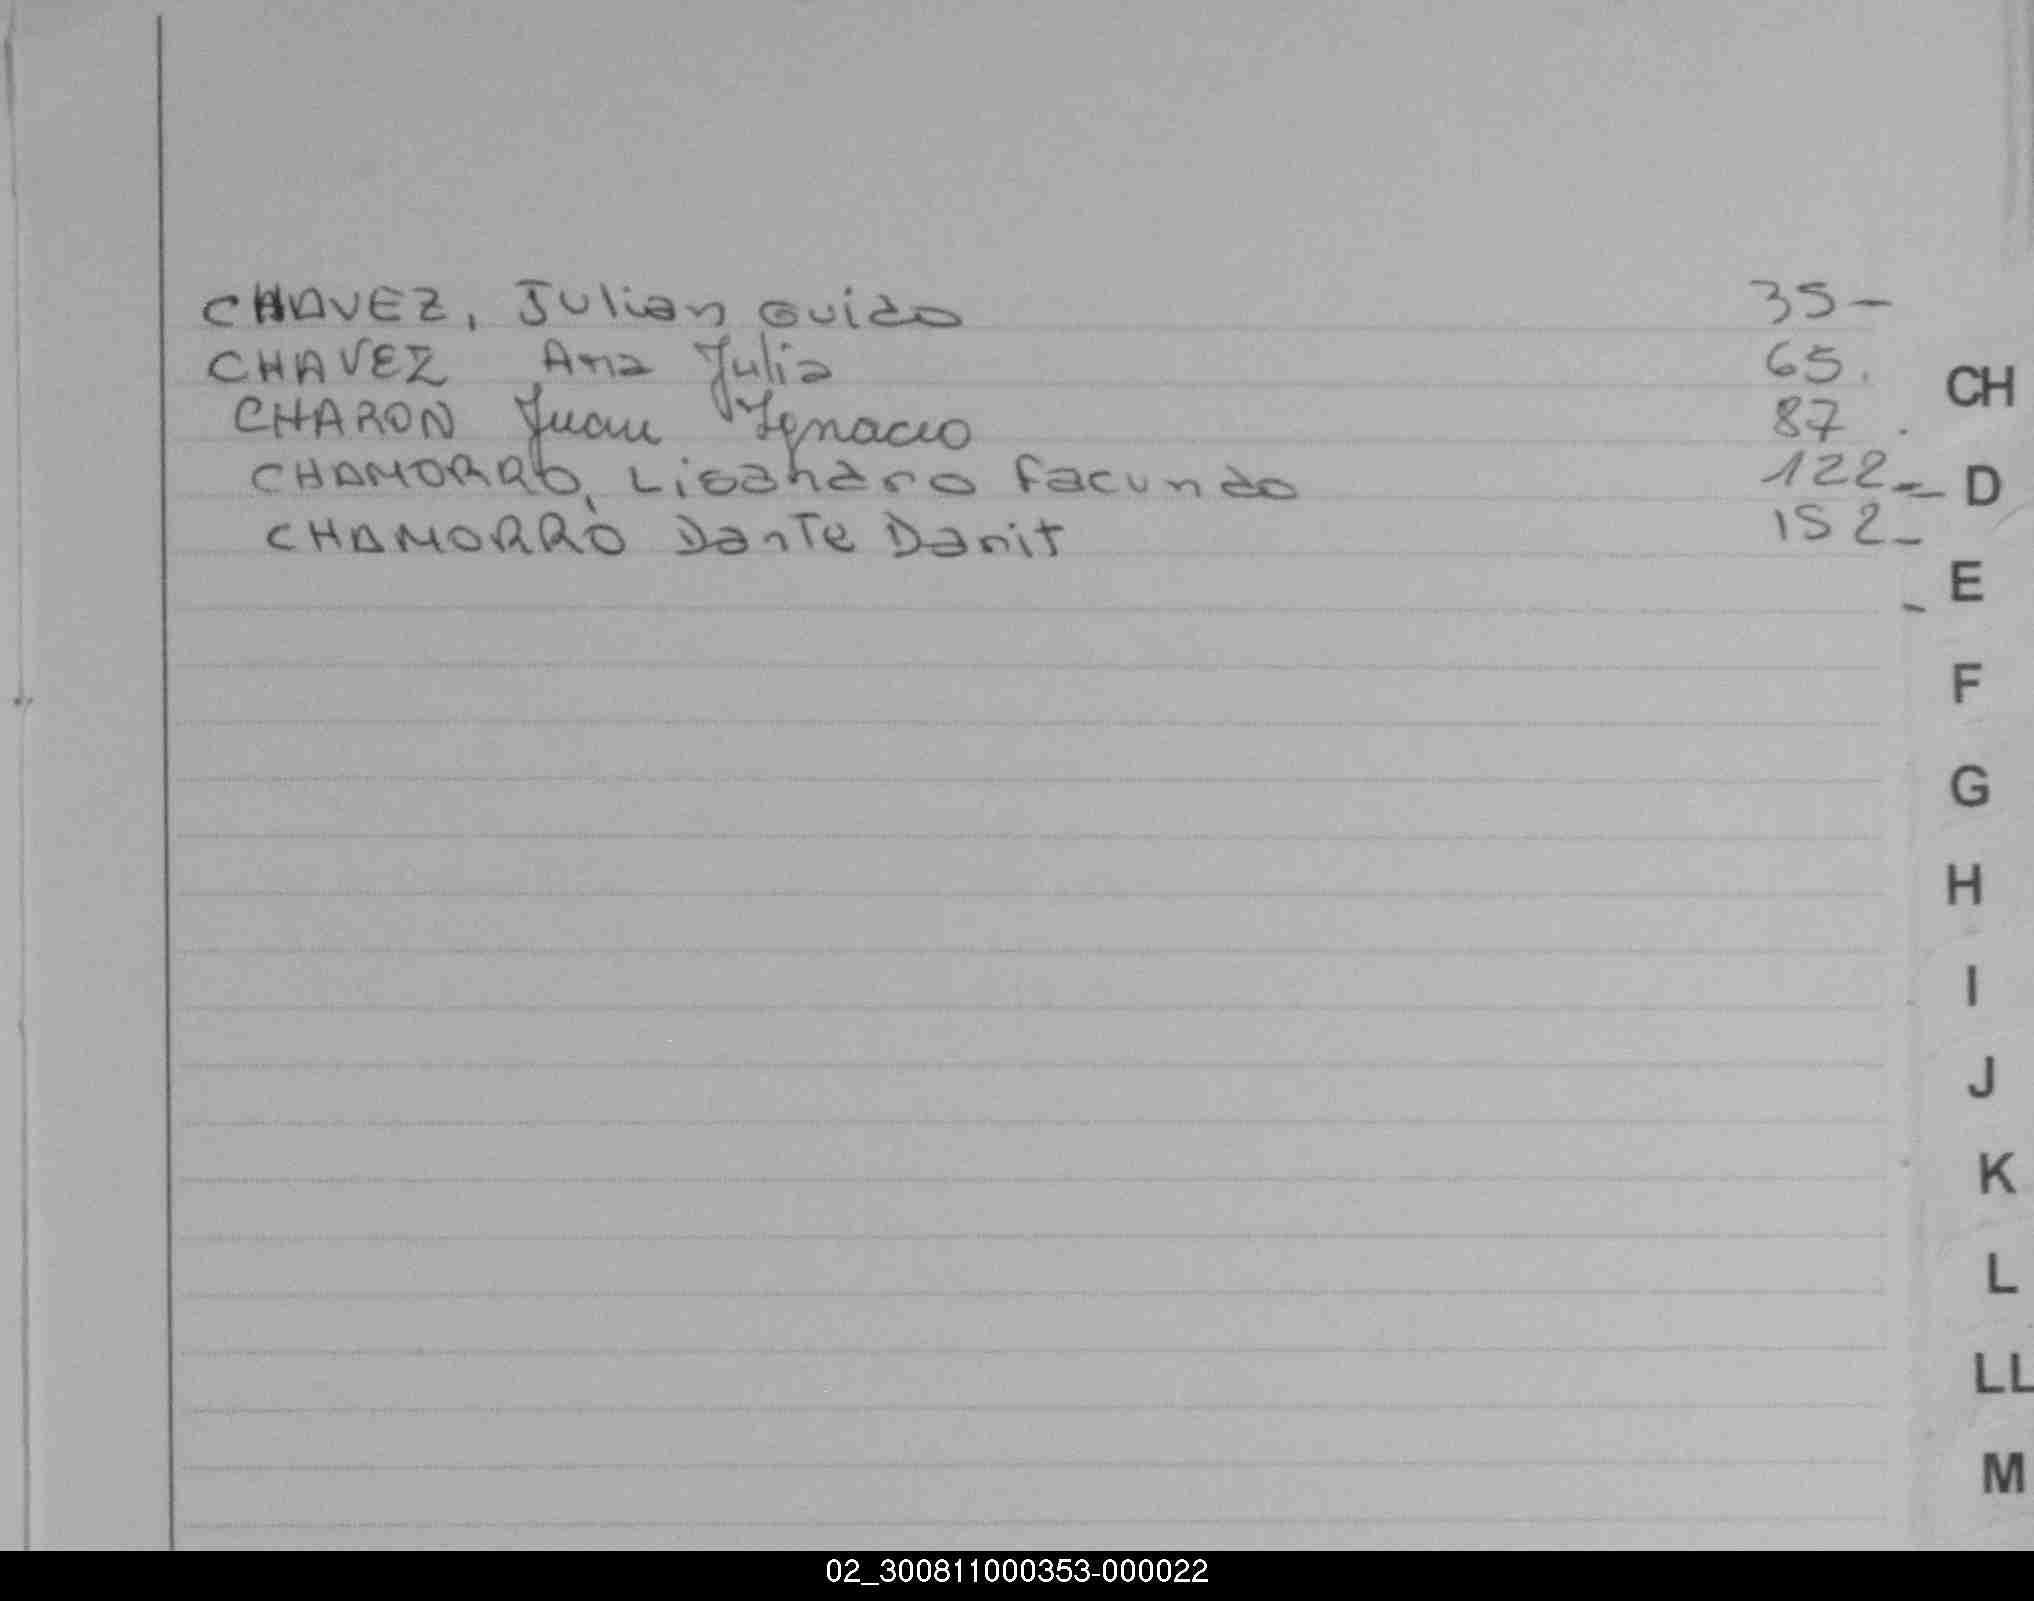 CHAVEZ, Julian Guido 35-
CHAVEZ Ana Julia 65.
CHARON Juan Ignacio 87.
CHAMORRO, Lisandro Facundo 122-
CHAMORRO Dante Danit 152-
CH
D
E
F
G
H
I
J
K
L
LL
M
02_300811000353-000022